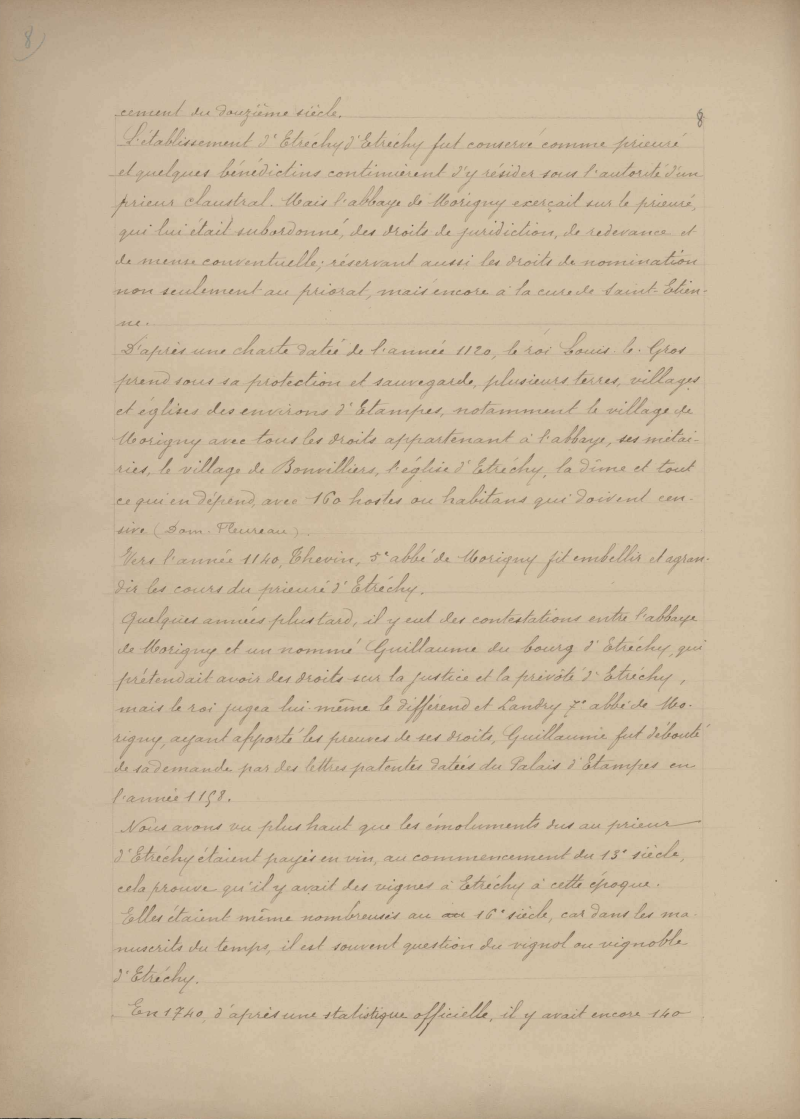 8)
8
cement du douzième siècle.
L'établissement d'Etréchy d'Etréchy fut conservé comme prieuré
et quelques bénédictins continuèrent d'y résider sous l'autorité d'un
prieur claustral. Mais l'abbaye de Morigny exerçait sur le prieuré,
qui lui était subordonné, des droits de juridiction, de redevance et
de mense conventuelle; réservant aussi les droits de nomination
non seulement au priorat, mais encore à la cure de Saint-Etien-
ne.
D'après une charte datée de l'année 1120, le roi Louis-le-Gros
prend sous sa protection et sauvegarde, plusieurs terres, villages
et églises des environs d'Etampes, notamment le village de
Morigny avec tous les droits appartenant à l'abbaye, ses métai-
ries, le village de Bonvilliers, l'église d'Etréchy, la dîme et tout
ce qui en dépend, avec 160 hostes ou habitans qui doivent cen-
sive (Dom. Fleureau).
Vers l'année 1140, Thevin, 5e abbé de Morigny fit embellir et agran-
dir les cours du prieuré d'Etréchy.
Quelques années plus tard, il y eut des contestations entre l'abbaye
de Morigny et un nommé Guillaume du bourg d'Etréchy, qui
prétendait avoir des droits sur la justice et la prévôté d'Etréchy,
mais le roi jugea lui-même le différend et Landry 7e abbé de Mo-
rigny, ayant apporté les preuves de ses droits, Guillaume fut débouté
de sa demande par des lettres patentes datées du Palais d'Etampes en
l'année 1158.
Nous avons vu plus haut que les émoluments dus au prieur
d'Etréchy étaient payés en vin, au commencement du 13e siècle,
cela prouve qu'il y avait des vignes à Etréchy à cette époque.
Elles étaient même nombreuses au au 16e siècle, car dans les ma-
nuscrits du temps, il est souvent question du vignol ou vignoble
d'Etréchy.
En 1740, d'après une statistique officielle, il y avait encore 140